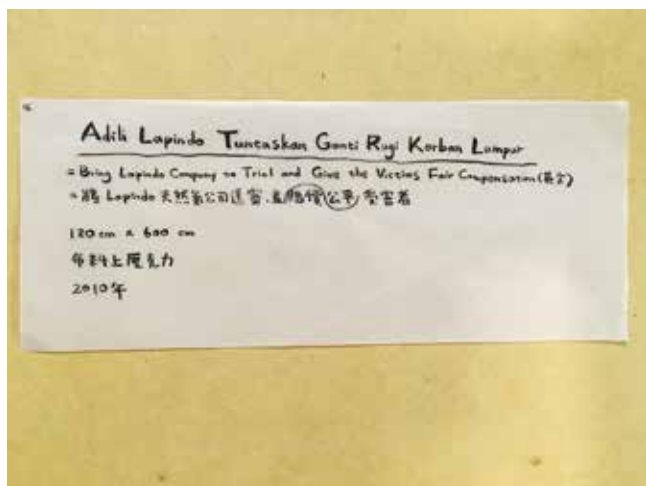 Adili Lapindo Tuntaskan Ganti Rugi Korban Lumpur
= Bring Lapindo Company to Trial and Give the Victims Fair Compensation (英文)
= 將 Lapindo 天然氣公司送審、並賠償公平受害者
120 cm x 600 cm
布料上壓克力
2010年